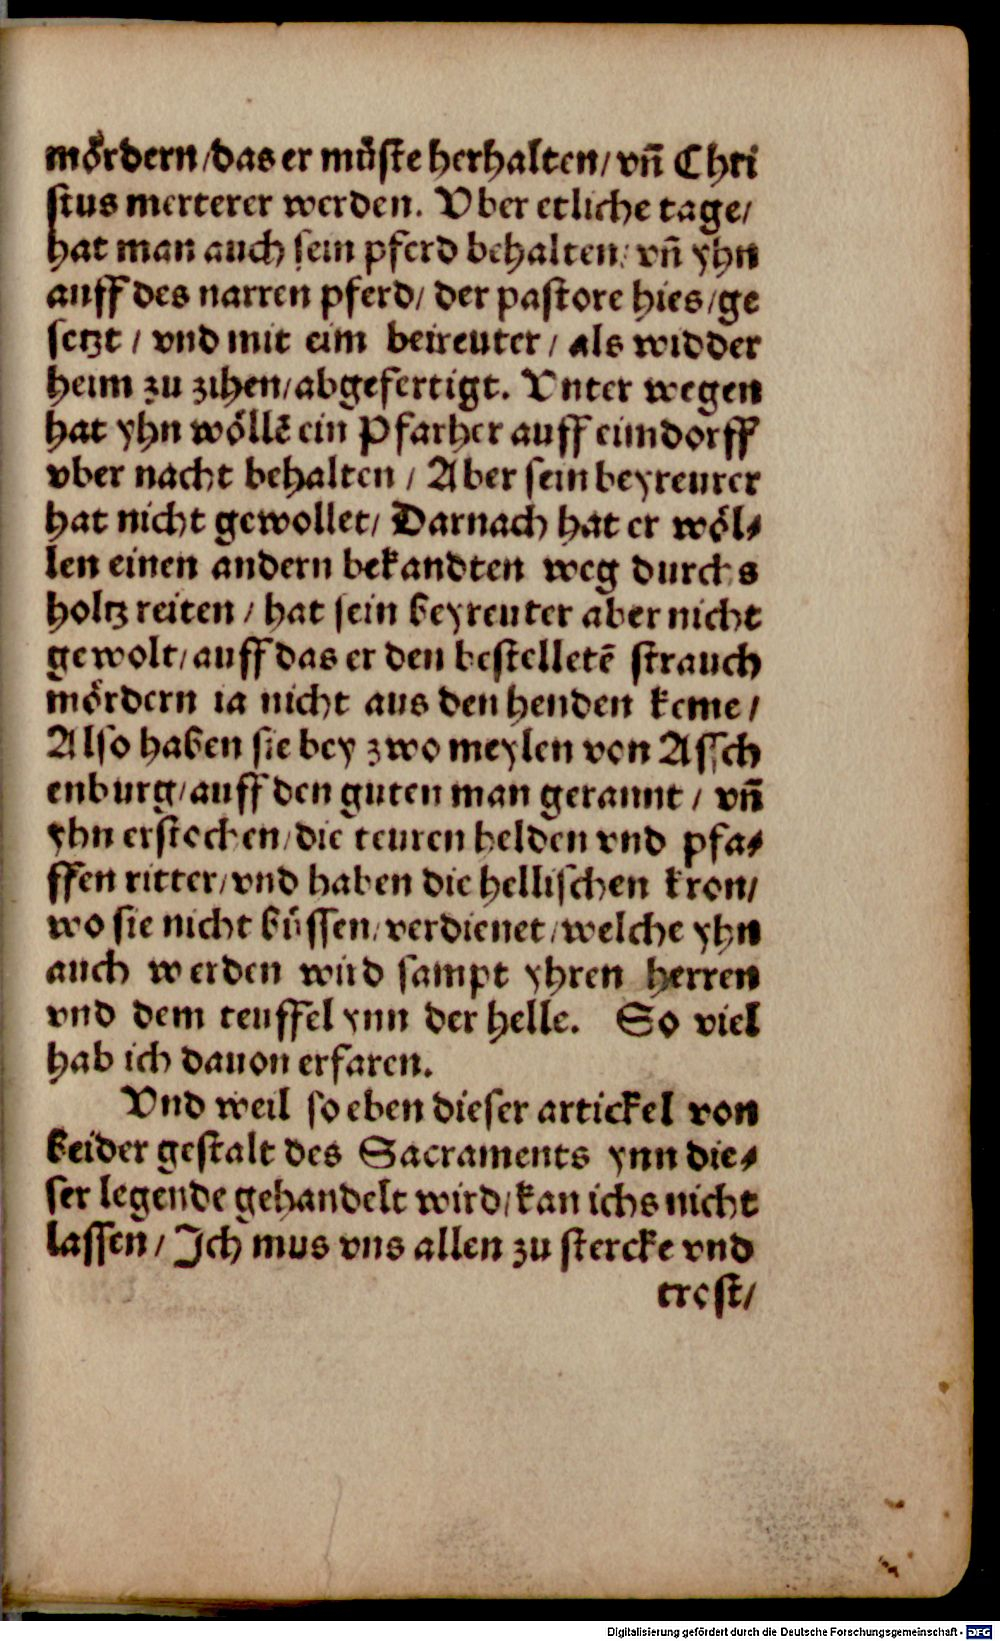 mördern/das er müſte herhalten/ vñ Chri
ſtus merterer werden. Vber etliche tage/
hat man auch ſein pferd behalten/ vñ yhn
auff des narren pferd/ der paſtore hies/ge
ſetzt / vnd mit eim beireuter / als widder
heim zu zihen/abgefertigt. Vnter wegen
hat yhn wöllē ein Pfarher auff eim dorff
vber nacht behalten / Aber ſein beyreuter
hat nicht gewollet/ Darnach hat er wöl⸗
len einen andern bekandten weg durchs
holtz reiten / hat ſein beyreuter aber nicht
gewolt/ auff das er den beſtelletē ſtrauch
mördern ia nicht aus den henden keme /
Alſo haben ſie bey zwo meylen von Aſſch
enburg/auff den guten man gerannt / vñ
yhn erſtochen/die teuren helden vnd pfa⸗
ffen ritter/vnd haben die helliſchen kron/
wo ſie nicht büſſen/verdienet/welche yhn
auch werden wird ſampt yhren herren
vnd dem teuffel ynn der helle. So viel
hab ich dauon erfaren.
Vnd weil ſo eben dieſer artickel von
beider geſtalt des Sacraments ynn die⸗
ſer legende gehandelt wird/kan ichs nicht
laſſen/ Jch mus vns allen zu ſtercke vnd
troſt/
Digitalisierung gefördert durch die Deutsche Forschungsgemeinschaft - DFG